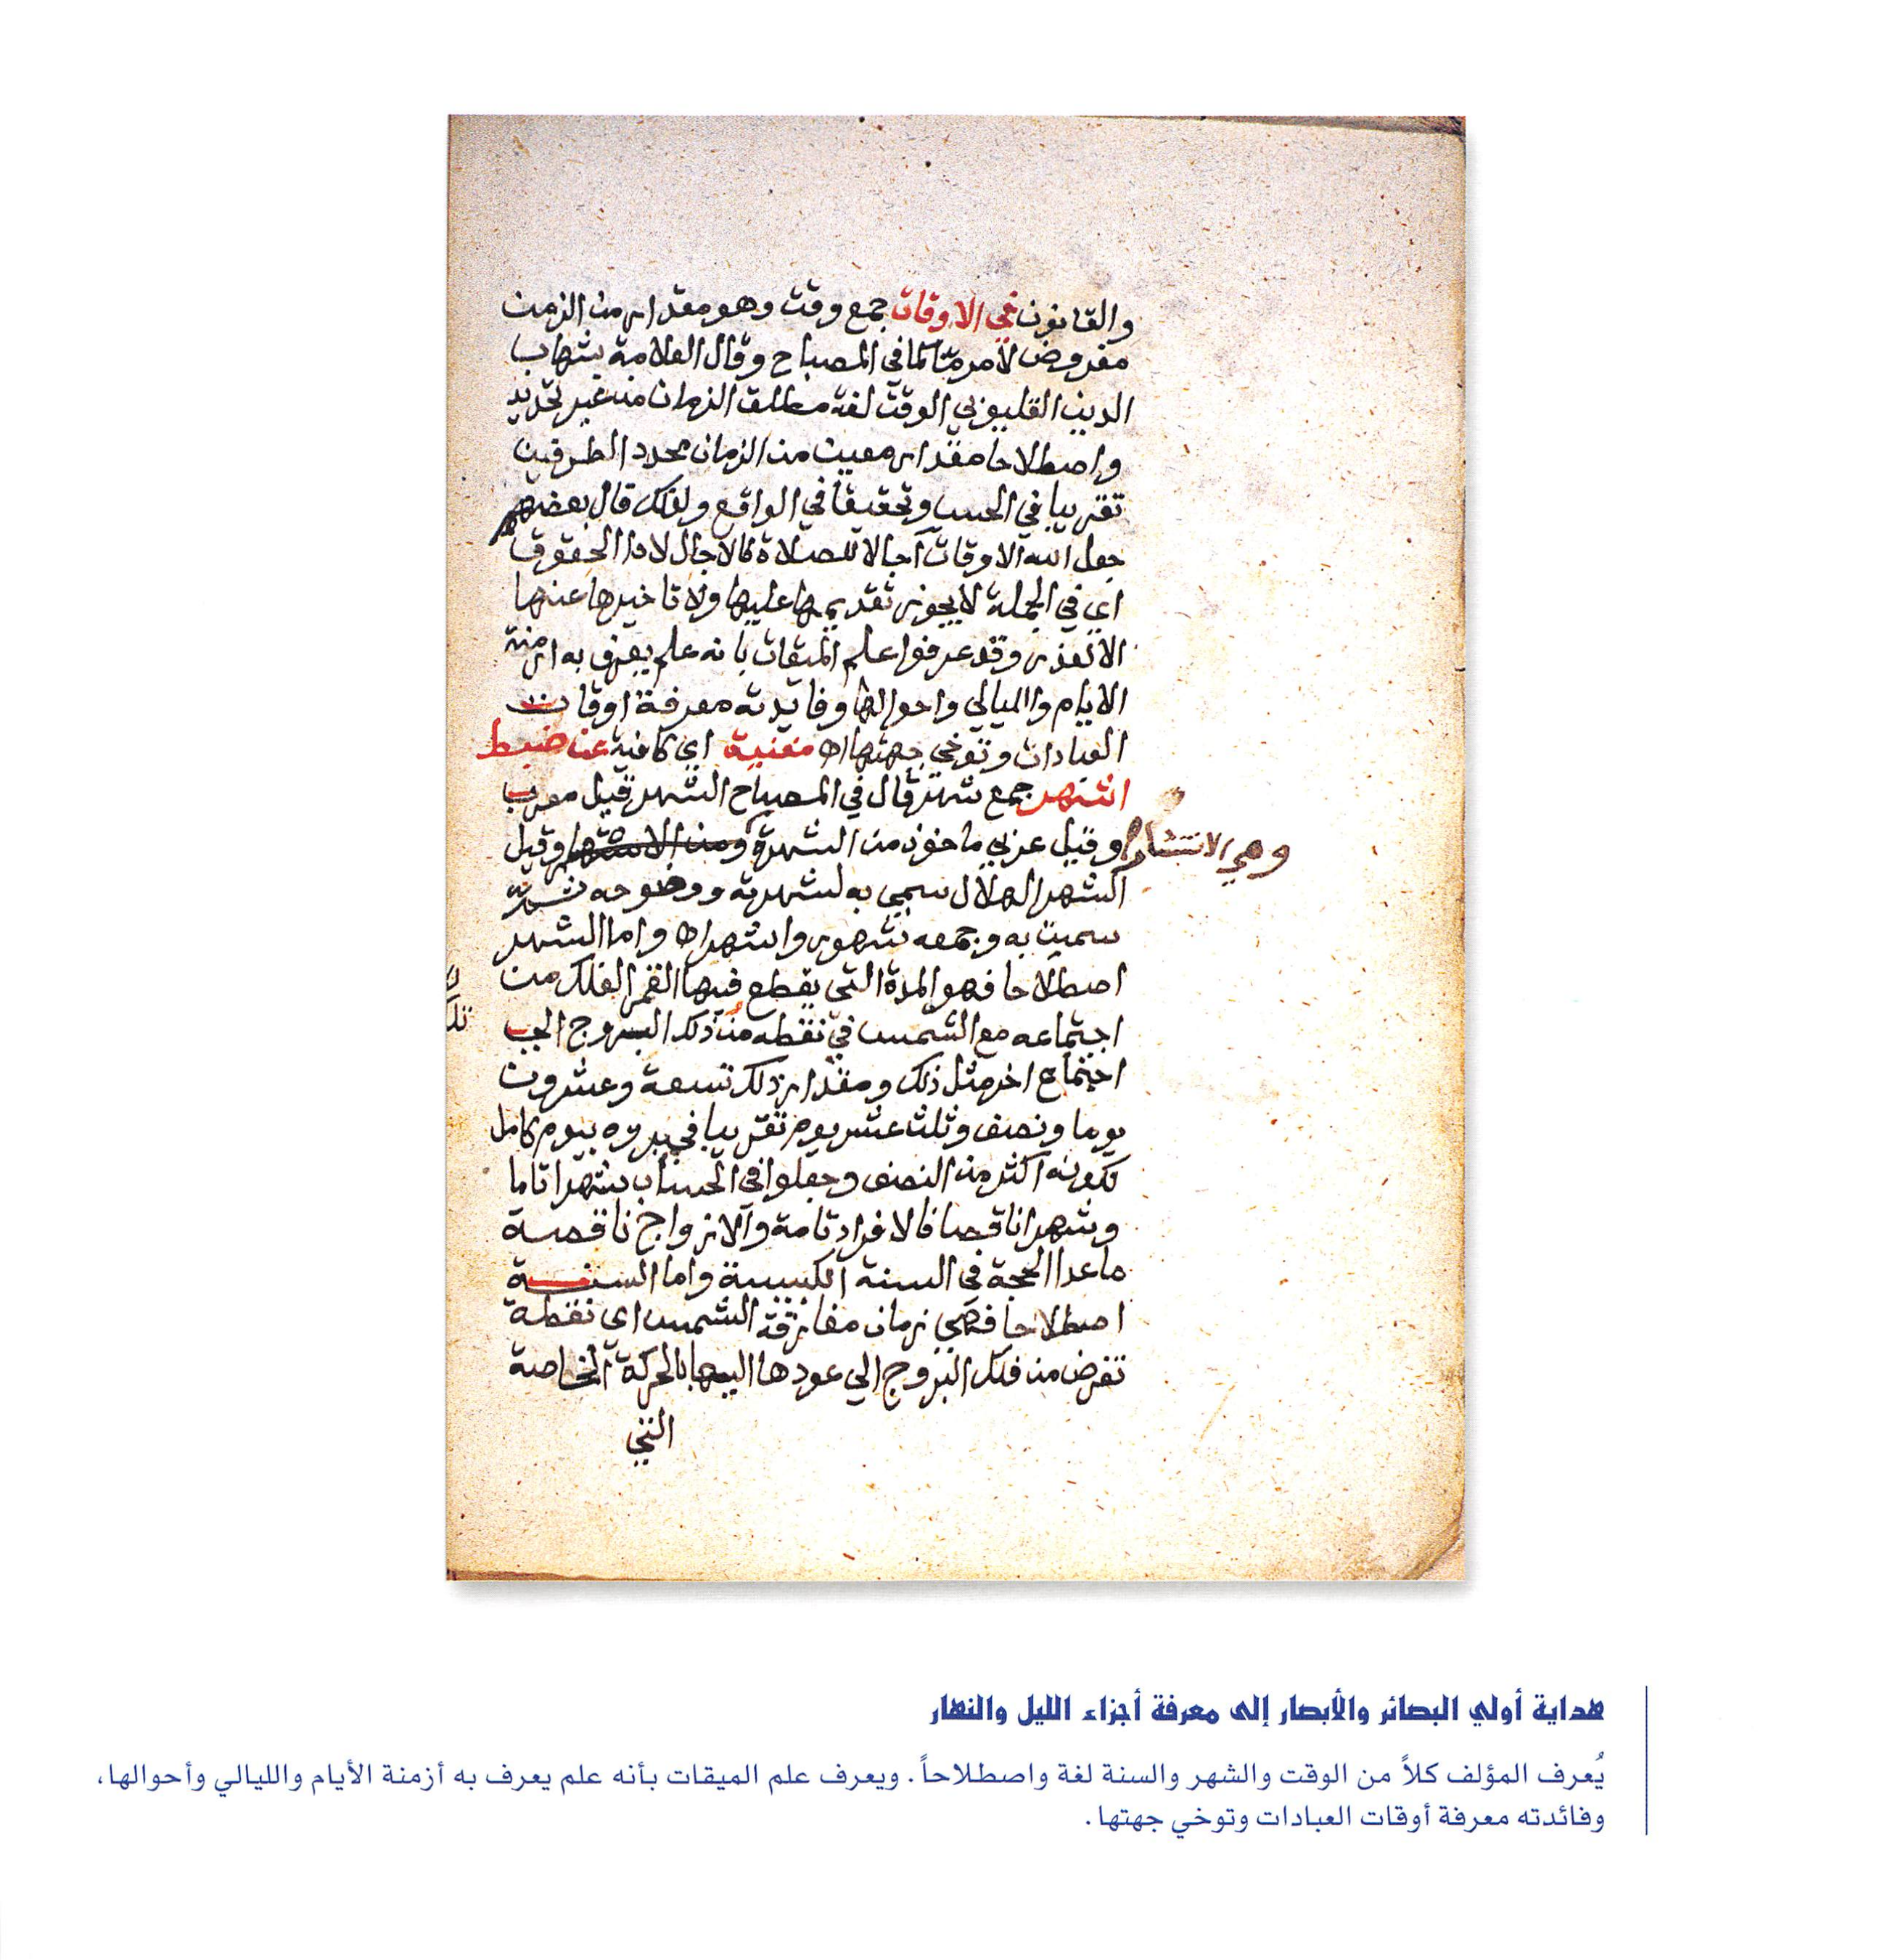 والقانون في الاوقات جمع وقت وهو مقدار من الزمن
مفروض لامر مّا كما في المصباح وقال العلامة شهاب
الدين القليوبي الوقت لغة مطلق الزمان من غير تحديد
واصطلاحا مقدار معين من الزمان محدد الطرفين
تقريبا في الحس وتحقيقا في الواقع ولذلك قال بعضهم
جعل الله الاوقات آجالا للصلاة كالاجال لاداء الحقوق
اي في الجملة لا يجوز تقديمها عليها ولا تاخيرها عنها
الا لعذر وقد عرفوا علم الميقات بانه علم يعرف به ازمنة
الايام والليالي واحوالها وفايدته معرفة اوقات
العبادات وتوخي جهتها اه مغنية اي كافية عن ضبط
اشهر جمع شهر قال في المصباح الشهر قيل معرب
وقيل عربي ماخوذ من الشهرة ومن الاشتهار وقيل
وهي الانتشار
الشهر الهلال سمي به لشهرته ووضوحه
سميت به وجمعه شهور واشهر اه واما الشهر
اصطلاحا فهو المدة التي يقطع فيها القمر الفلك من
اجتماعه مع الشمس في نقطه من ذلك البروج الى
اجتماع اخر مثل ذلك ومقدار ذلك تسعة وعشرون
يوما ونصف وثلث عشر يوم تقريبا في بروه بيوم كامل
لكونه اكثر من النصف وجعلوا في الحساب شهرا تاما
وشهرا ناقصا فالافراد تامة والازواج ناقصة
ما عدا الحجة في السنة الكبيسة واما السنة
اصطلاحا فهي زمان مفارقة الشمس اي نقطة
تفرض من فلك البروج الي عودها اليها بالحركة الخاصة
التي
هداية أولي البصائر والأبصار إلى معرفة أجزاء الليل والنهار
يُعرف المؤلف كلاً من الوقت والشهر والسنة لغة واصطلاحاً. ويعرف علم الميقات بأنه علم يعرف به أزمنة الأيام والليالي وأحوالها،
وفائدته معرفة أوقات العبادات وتوخي جهتها.